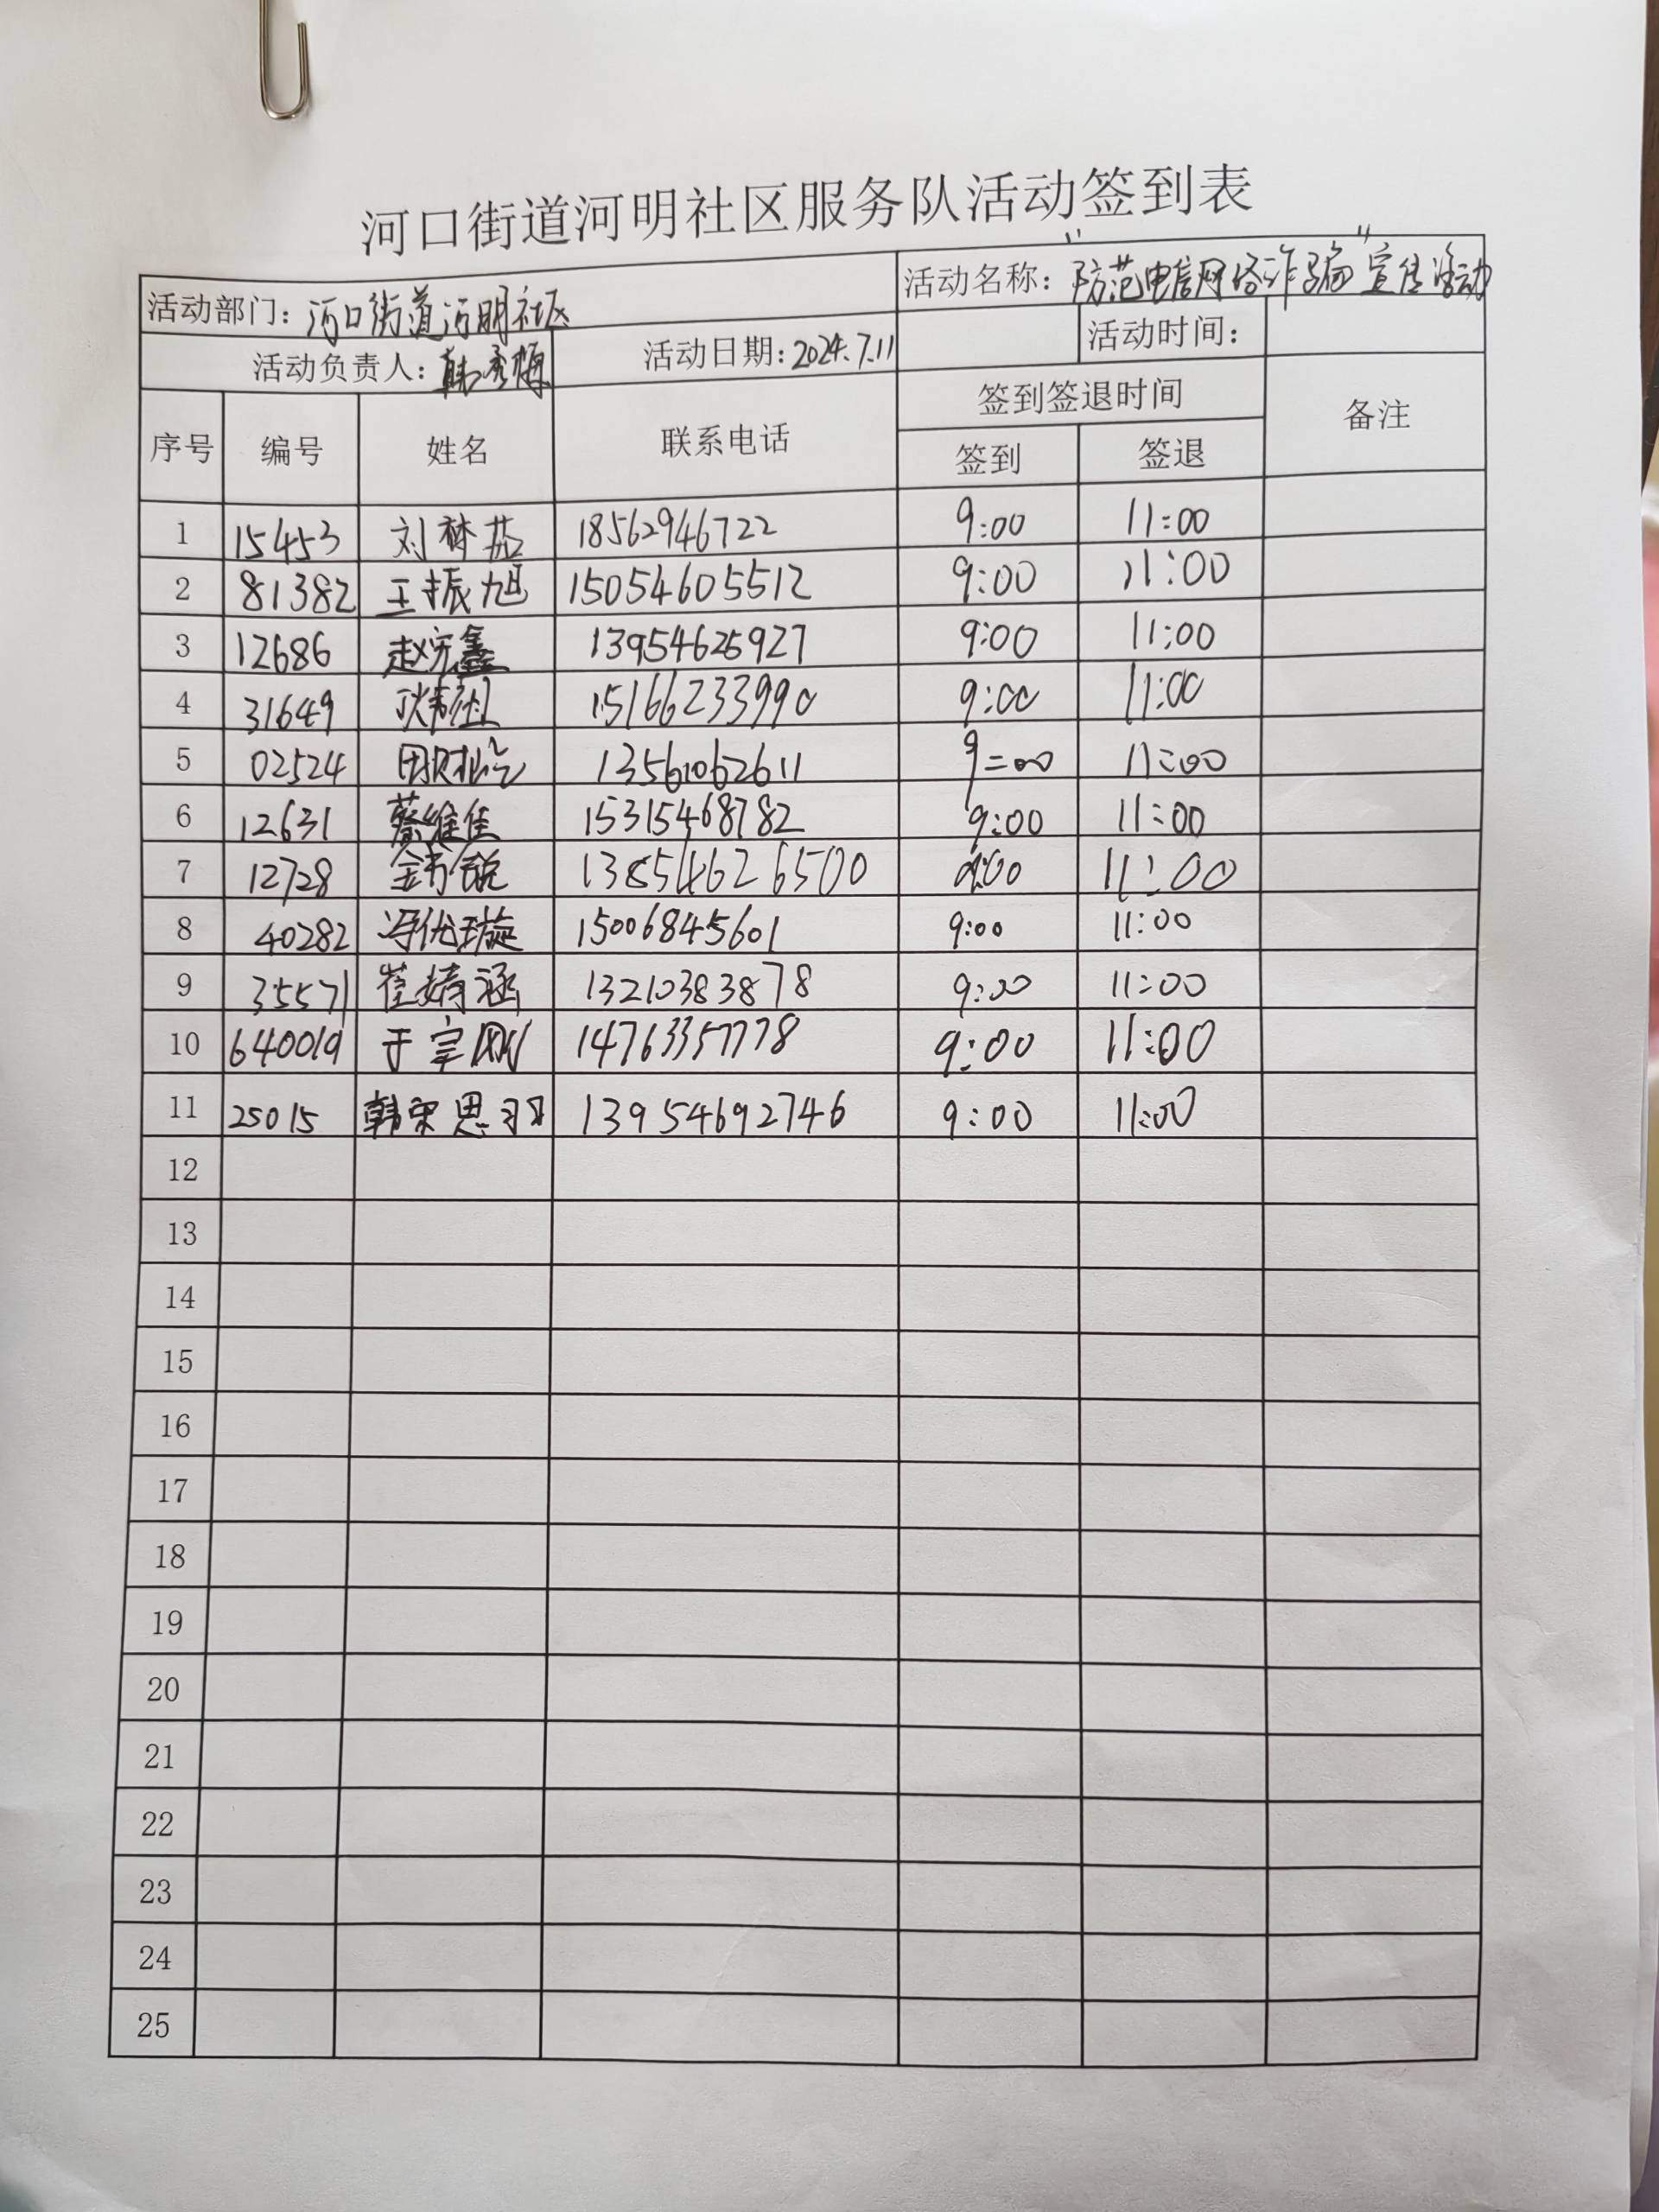 河口街道河明社区服务队活动签到表
活动部门：河口街道河明社区 活动名称："防范电信网络诈骗"宣传活动
活动负责人：韩秀梅 活动日期：2024.7.11 活动时间：
序号 编号 姓名 联系电话 签到签退时间 备注
签到 签退
1 15453 刘梦茹 18562946722 9:00 11:00
2 81382 王振旭 15054605512 9:00 11:00
3 12686 赵宗鑫 13954625927 9:00 11:00
4 31649 15166233990 9:00 11:00
5 02524 13561062611 9:00 11:00
6 12631 蔡维佳 15315468782 9:00 11:00
7 12728 13854626500 9:00 11:00
8 40282 冯优璇 15006845601 9:00 11:00
9 35571 崔婧涵 13210383878 9:00 11:00
10 640019 于宝刚 14763357778 9:00 11:00
11 25015 韩荣思羽 13954692746 9:00 11:00
12
13
14
15
16
17
18
19
20
21
22
23
24
25